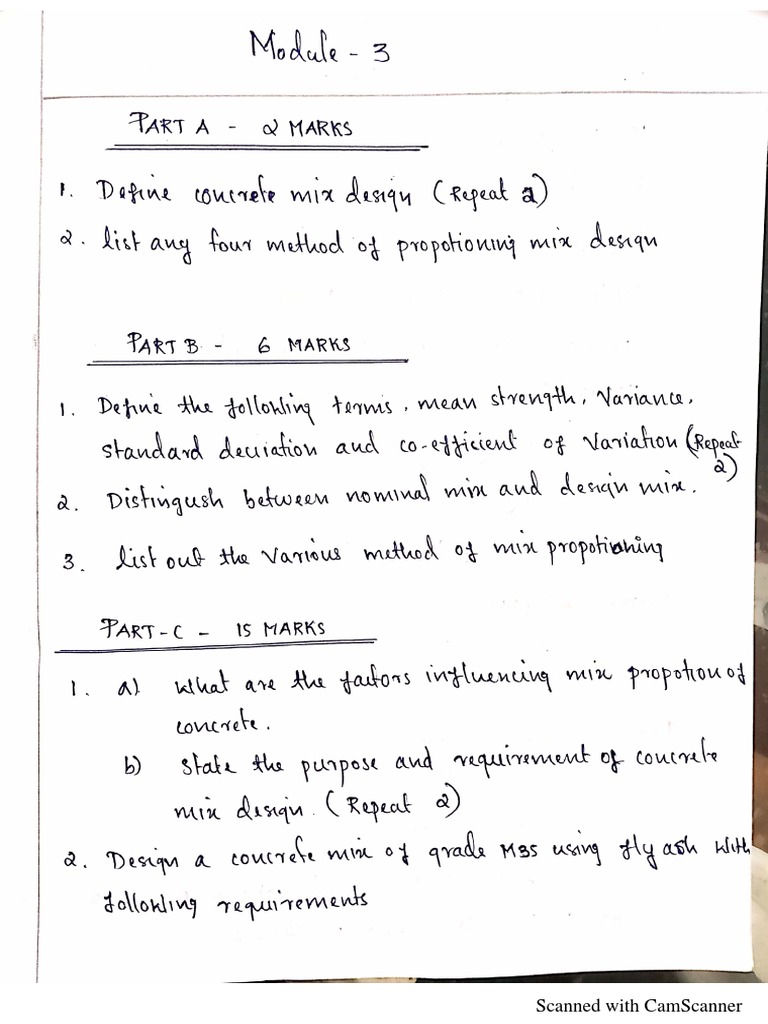 Module - 3
PART A - 2 MARKS
1. Define concrete mix design (Repeat 2)
2. list any four method of propotioning mix design
PART B - 6 MARKS
1. Define the following terms, mean strength, Variance,
standard deviation and co-efficient of Variation (Repeat
2)
2. Distingush between nominal mix and design mix.
3. list out the various method of mix propotioning
PART-C - 15 MARKS
1. a) What are the factors influencing mix propotion of
concrete.
b) state the purpose and requirement of concrete
mix design. (Repeat 2)
2. Design a concrete mix of grade M35 using fly ash with
following requirements
Scanned with CamScanner